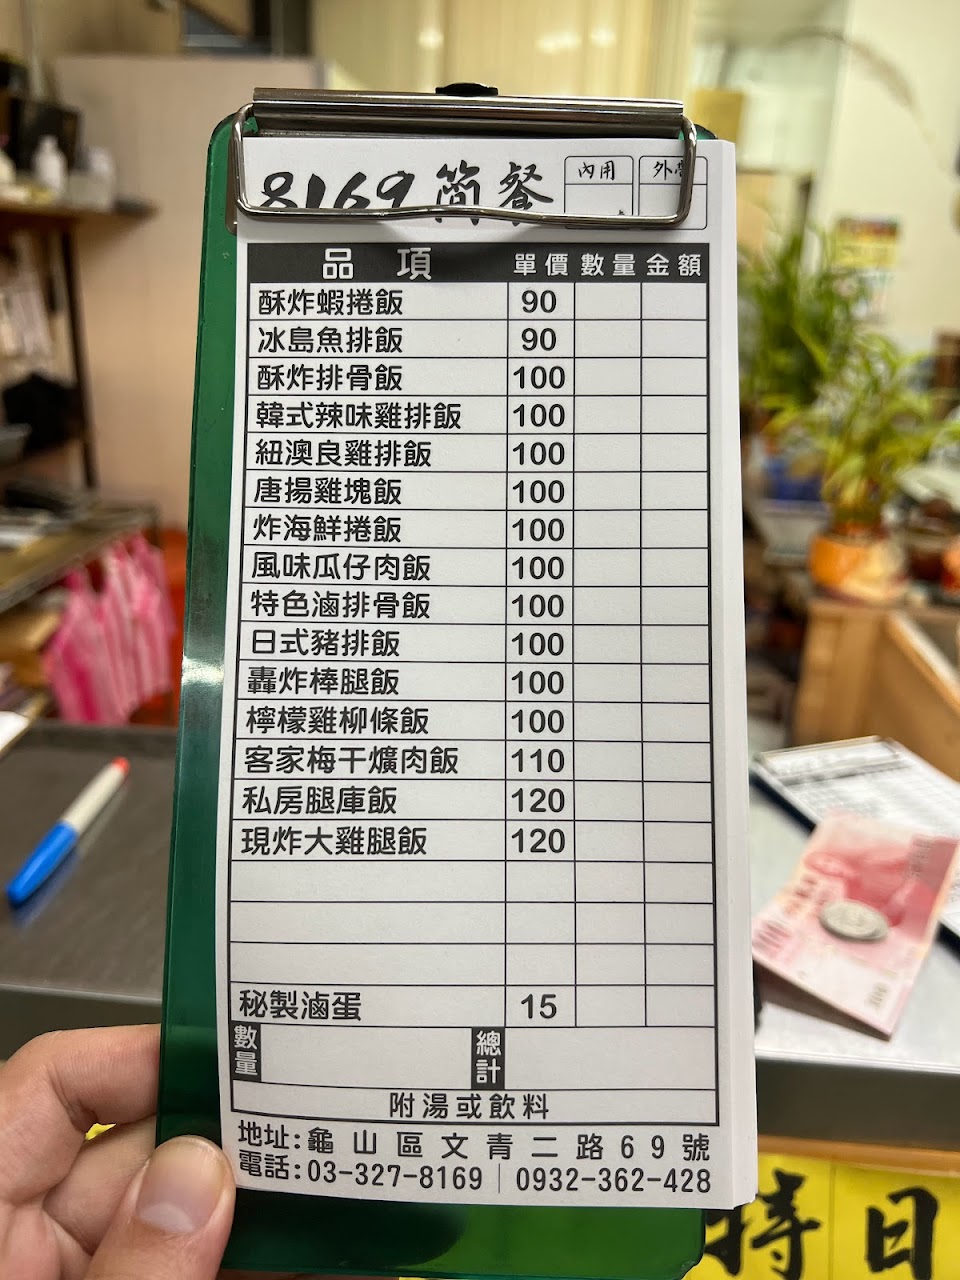 8169簡餐 內用 外帶
品項 單價 數量 金額
酥炸蝦捲飯 90
冰島魚排飯 90
酥炸排骨飯 100
韓式辣味雞排飯 100
紐澳良雞排飯 100
唐揚雞塊飯 100
炸海鮮捲飯 100
風味瓜仔肉飯 100
特色滷排骨飯 100
日式豬排飯 100
轟炸棒腿飯 100
檸檬雞柳條飯 100
客家梅干爌肉飯 110
私房腿庫飯 120
現炸大雞腿飯 120
秘製滷蛋 15
數量 總計
附湯或飲料
地址:龜山區文青二路69號
電話:03-327-8169|0932-362-428
持日